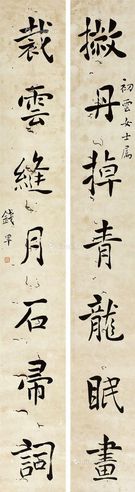 初雲女士屬
撇丹掉青龍眠畫
裁雲縫月石帚詞
錢罕